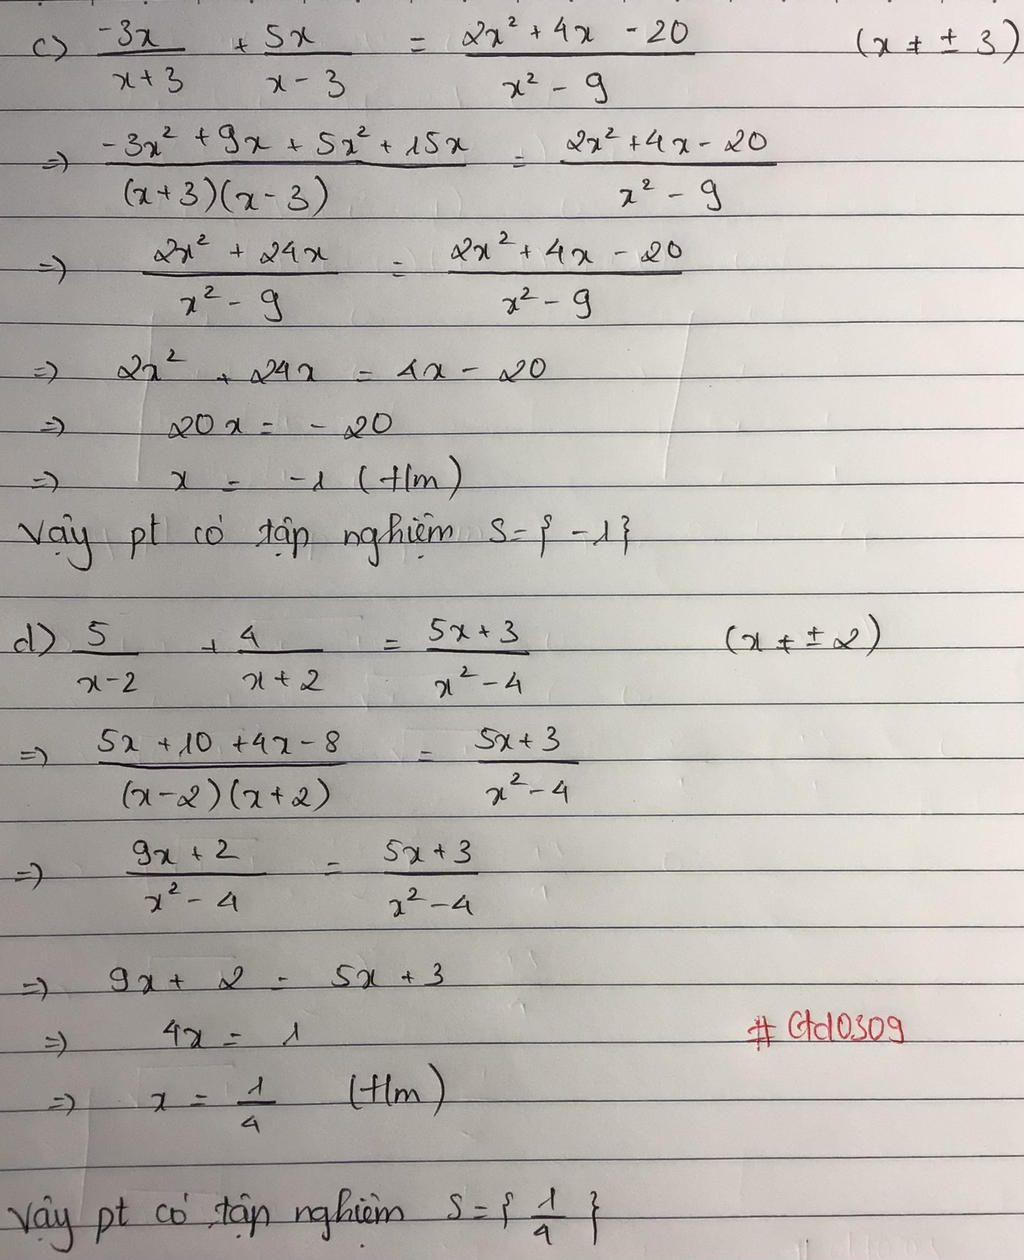 c) -3x/(x+3) + 5x/(x-3) = (2x² + 4x - 20)/(x² - 9) (x ≠ ± 3)
=) (-3x² + 9x + 5x² + 15x)/((x+3)(x-3)) = (2x² + 4x - 20)/(x² - 9)
=) (2x² + 24x)/(x² - 9) = (2x² + 4x - 20)/(x² - 9)
=) 2x² + 24x = 4x - 20
=) 20x = - 20
=) x = -1 (t/m)
Vậy pt có tập nghiệm S = { -1 }
d) 5/(x-2) + 4/(x+2) = (5x+3)/(x² - 4) (x ≠ ± 2)
=) (5x + 10 + 4x - 8)/((x-2)(x+2)) = (5x+3)/(x² - 4)
=) (9x + 2)/(x² - 4) = (5x + 3)/(x² - 4)
=) 9x + 2 = 5x + 3
=) 4x = 1
# Gtd0309
=) x = 1/4 (t/m)
Vậy pt có tập nghiệm S = { 1/4 }